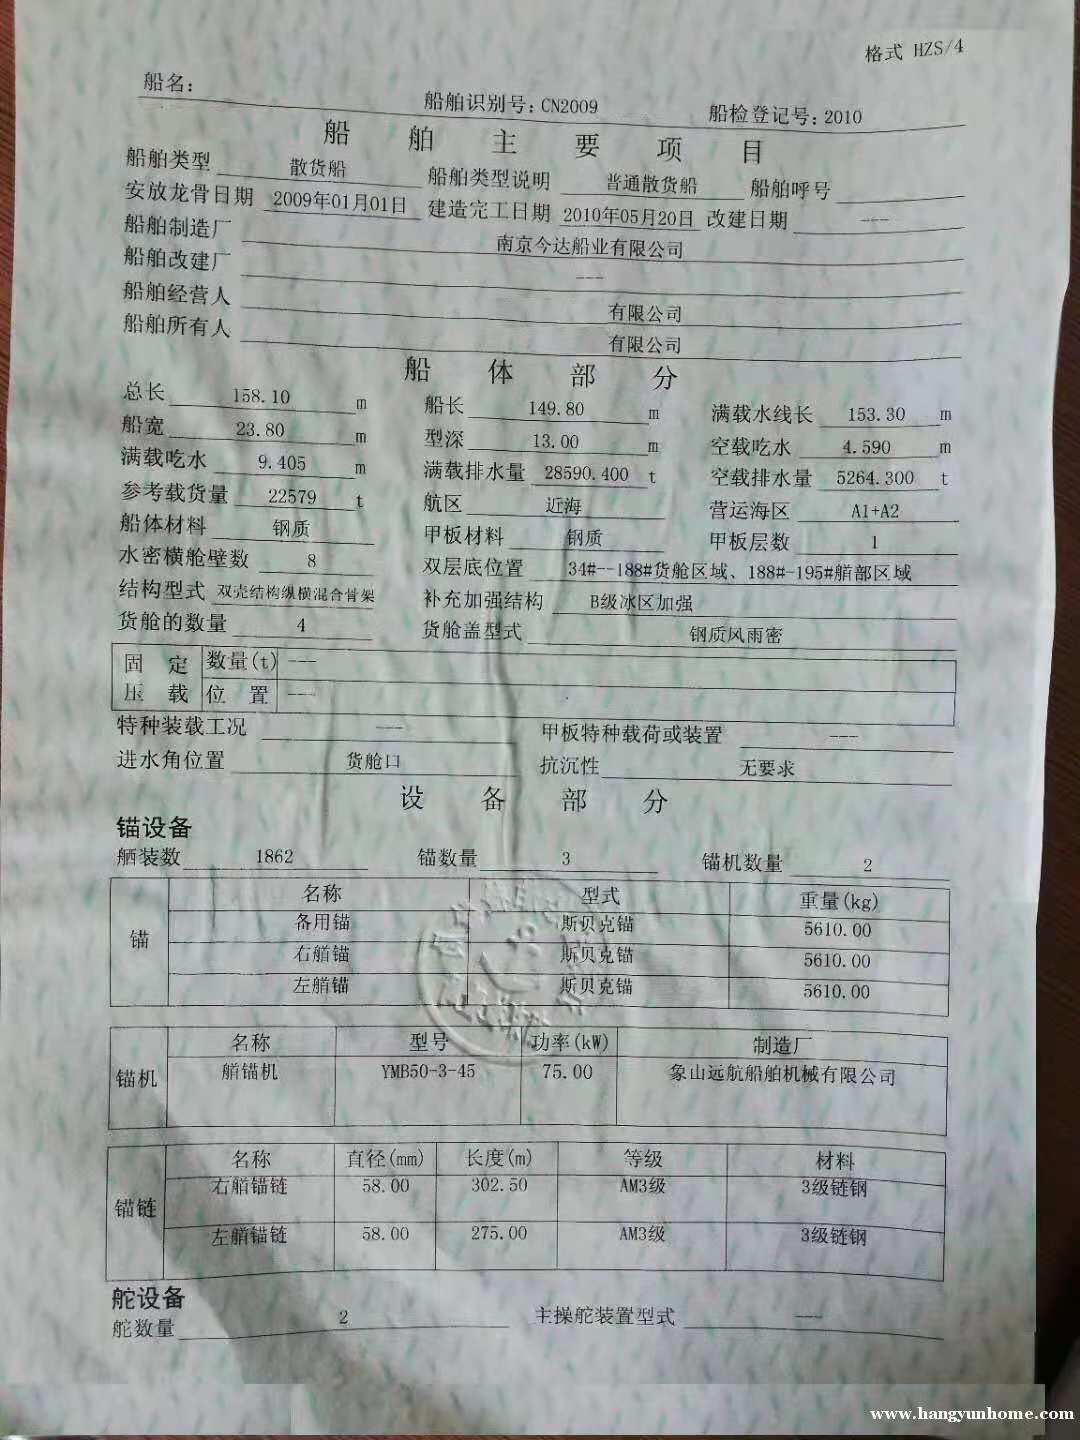 格式 HZS/4
船名: 船舶识别号:CN2009 船检登记号:2010
船 舶 主 要 项 目
船舶类型 散货船 船舶类型说明 普通散货船 船舶呼号
安放龙骨日期 2009年01月01日 建造完工日期 2010年05月20日 改建日期 ---
船舶制造厂 南京今达船业有限公司
船舶改建厂 ---
船舶经营人 有限公司
船舶所有人 有限公司
船 体 部 分
总长 158.10 m 船长 149.80 m 满载水线长 153.30 m
船宽 23.80 m 型深 13.00 m 空载吃水 4.590 m
满载吃水 9.405 m 满载排水量 28590.400 t 空载排水量 5264.300 t
参考载货量 22579 t 航区 近海 营运海区 A1+A2
船体材料 钢质 甲板材料 钢质 甲板层数 1
水密横舱壁数 8 双层底位置 34#--188#货舱区域、188#-195#艏部区域
结构型式 双壳结构纵横混合骨架 补充加强结构 B级冰区加强
货舱的数量 4 货舱盖型式 钢质风雨密
固 定 数量(t) ---
压 载 位 置 ---
特种装载工况 --- 甲板特种载荷或装置 ---
进水角位置 货舱口 抗沉性 无要求
设 备 部 分
锚设备
舾装数 1862 锚数量 3 锚机数量 2
名称 型式 重量(kg)
锚 备用锚 斯贝克锚 5610.00
右艏锚 斯贝克锚 5610.00
左艏锚 斯贝克锚 5610.00
名称 型号 功率(kW) 制造厂
锚机 艏锚机 YMB50-3-45 75.00 象山远航船舶机械有限公司
名称 直径(mm) 长度(m) 等级 材料
锚链 右艏锚链 58.00 302.50 AM3级 3级链钢
左艏锚链 58.00 275.00 AM3级 3级链钢
舵设备
舵数量 2 主操舵装置型式 ---
www.hangyunhome.com